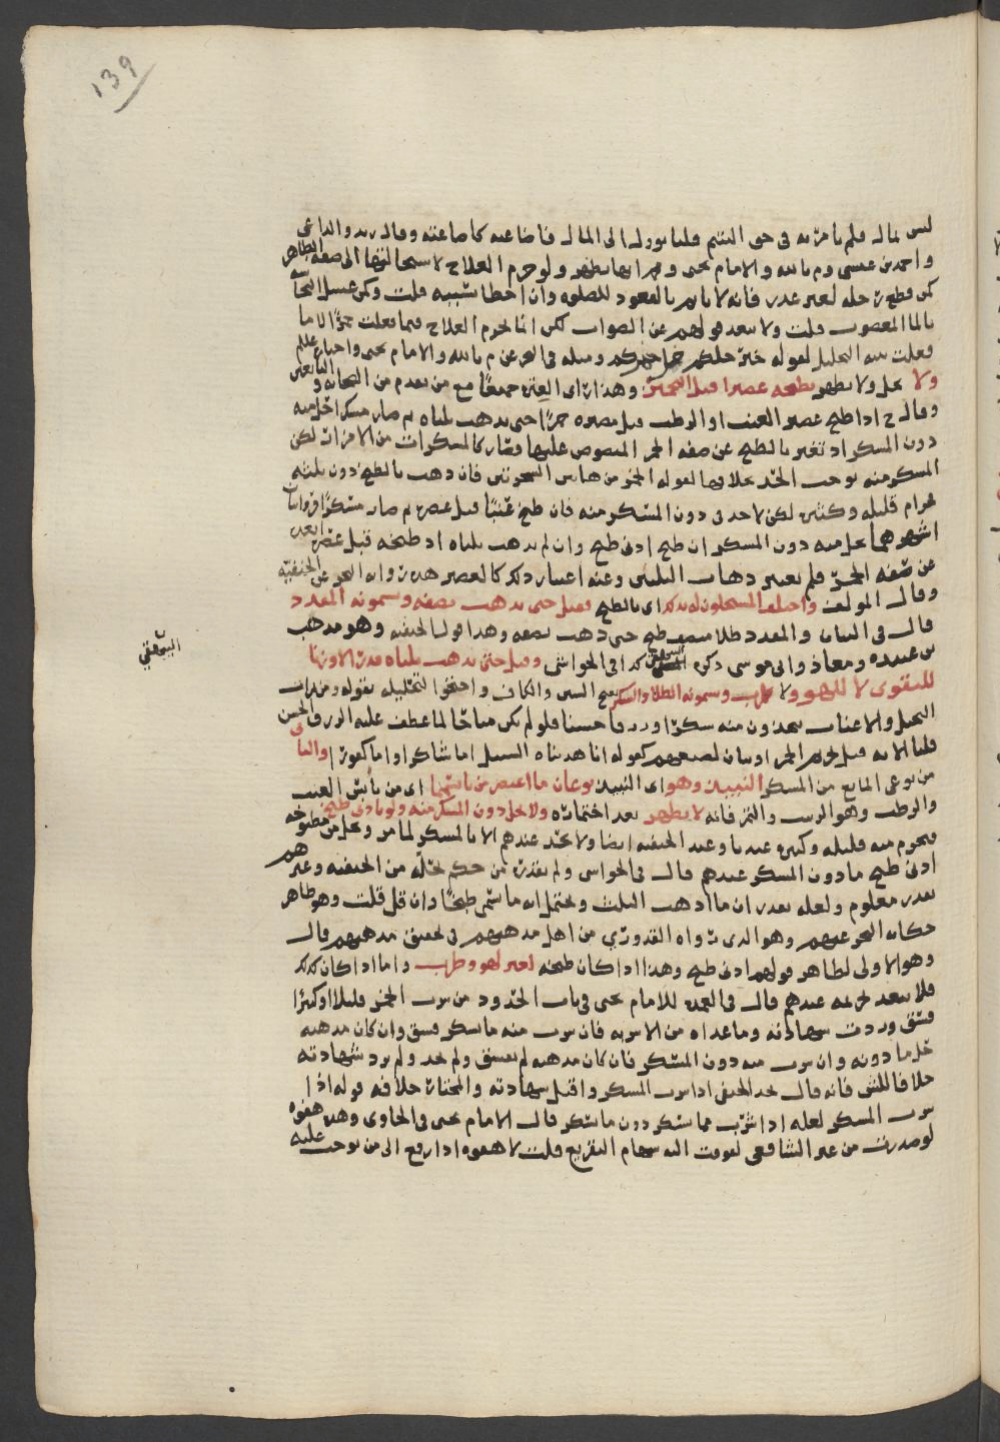 139
ليس بمال فلم يامن به في حق اليتيم قلنا يؤول الى المال فاضاعته كاضاعته وقال زيد والداعي
واحمد بن عيسى وم بالله والامام يحيى انها تطهر ولو حرم العلاج لاستحالتها الى صفة الطاهر
كمن قطع رجله لغير عذر فانه لا ياثم بالقعود للصلوة وان اخطا بسببه قلت وكمن غسل النجاسة
بالما المغصوب قلت ولا يبعد قولهم عن الصواب لكن انما يحرم العلاج فيما فعلت خمرا لا ما
فعلت بنية التخليل لقوله خير خلكم خل خمركم ومثله في البحر عن م بالله والامام يحيى
ولا يحل ولا يطهر بطبخه عصيرا قبل التخمر وهذا راي العترة جميعا مع من تقدم من الصحابة والتابعين
وقال ح اذا طبخ عصير العنب او الرطب قبل مصيره خمرا حتى يذهب ثلثاه ثم صار مسكرا حل منه
دون المسكر اذ تغير بالطبخ عن صفة الخمر المنصوص عليها فصار كالمسكرات من الامزار لكن
المسكر منه يوجب الحد بخلافها لقوله الخمر من هاتين الشجرتين فان ذهب بالطبخ دون ثلثيه
فحرام قليله وكثيره لكن لا حد في دون المسكر منه فان طبخ عنبا قبل عصره ثم صار مسكرا فروايتان
اشهرهما يحل منه دون المسكر ان طبخ ادنى طبخ وان لم يذهب ثلثاه اذ طبخه قبل عصره ابعد
عن صفة الخمر فلم يعتبر ذهاب الثلثين وعنه اعتبار ذلك كالعصير هذه رواية البحر عن الحنفية
وقال المولف واختلف المستحلون له بذلك اي بالطبخ فقيل حتى يذهب نصفه ويسمونه المقدد
قال في البيان والمقدد طلا منصف طبخ حتى ذهب نصفه وهذا قول الحنفية وهو مذهب
بن عبيده ومعاذ وابي موسى ذكره البيهقي كذا في الحواشي وقيل حتى يذهب ثلثاه قدرا لا وزنا
البيهقي
للتقوى لا للهو ولا طرب ويسمونه الطلاء والسكر بفتح السين والكاف واحتجوا لتحليله بقوله ومن ثمرات
النخيل والاعناب تتخذون منه سكرا ورزقا حسنا فلو لم يكن مباحا لما عطف عليه الرزق الحسن
قلنا الايه قبل تحريم الخمر او بيان لصنيعهم كقوله انا هديناه السبيل اما شاكرا واما كفورا والثاني
من نوعي المايع من المسكر النبيذ وهو اي النبيذ نوعان ما اعتصر من يابسهما اي من يابس العنب
والرطب وهو الزبيب والتمر فانه لا يطهر بعد اختماره ولا يحل دون المسكر منه ولو بادنى طبخ
فيحرم منه قليله وكثيره عندنا وعند الحنفية ايضا ولا يحد عندهم الا بالمسكر لما مر ويحل من مطبوخه
ادنى طبخ ما دون المسكر عندهم قال في الحواشي ولم يقدره من حكم بحله من الحنفية وغيرهم
بقدر معلوم ولعله يقدر ان ما اذهب الثلث ويحتمل انه ما سمي طبخا وان قل قلت وهو ظاهر
حكاية البحر عنهم وهو الذي رواه القدوري من اهل مذهبهم في تحقيق مذهبهم قال
وهو الاولى لظاهر قولهم ادنى طبخ وهذا اذا كان طبخه لغير لهو وطرب واما اذا كان كذلك
فلا يبعد تحريمه عندهم قال في العمدة للامام يحيى في باب الحدود من شرب الخمر قليلا او كثيرا
فسق وردت شهادته وما عداه من الاشربة فان شرب منه ما يسكر فسق وان كان مذهبه
حل ما دونه وان شرب منه دون المسكر فان كان مذهبه لم يفسق ولم يحد ولم ترد شهادته
خلافا للش فانه قال يحد الحنفي اذا شرب المسكر واقبل شهادته والمختار خلافه قوله اذا
شرب المسكر لعله اذا شرب مما يسكر دون ما يسكر قال الامام يحيى في الحاوي وهذه هفوة
لو صدرت من غير الشافعي لفوقت اليه سهام التقريع قلت لا هفوة اذا رفع الى من يوجب عليه